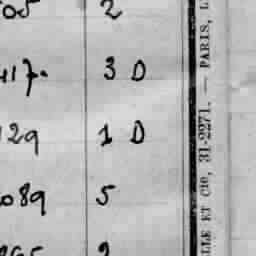 05 2
417. 3 D
129 1 D
089 5
LLE ET Cie, 31-2271. — PARIS,